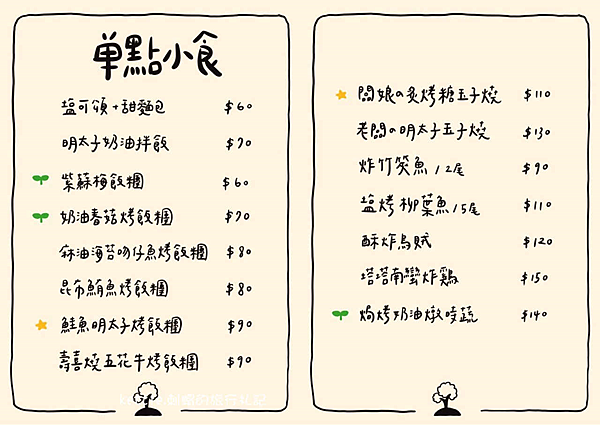 單點小食
塩可頌+甜麵包 $60
明太子奶油拌飯 $70
紫蘇梅飯糰 $60
奶油香菇烤飯糰 $70
麻油海苔吻仔魚烤飯糰 $80
昆布鮪魚烤飯糰 $80
鮭魚明太子烤飯糰 $90
壽喜燒五花牛烤飯糰 $90
闆娘の炙烤糖玉子燒 $110
老闆の明太子玉子燒 $130
炸竹筴魚/2尾 $90
塩烤柳葉魚/5尾 $110
酥炸烏賊 $120
塔塔南蠻炸鷄 $150
焗烤奶油燉時蔬 $140